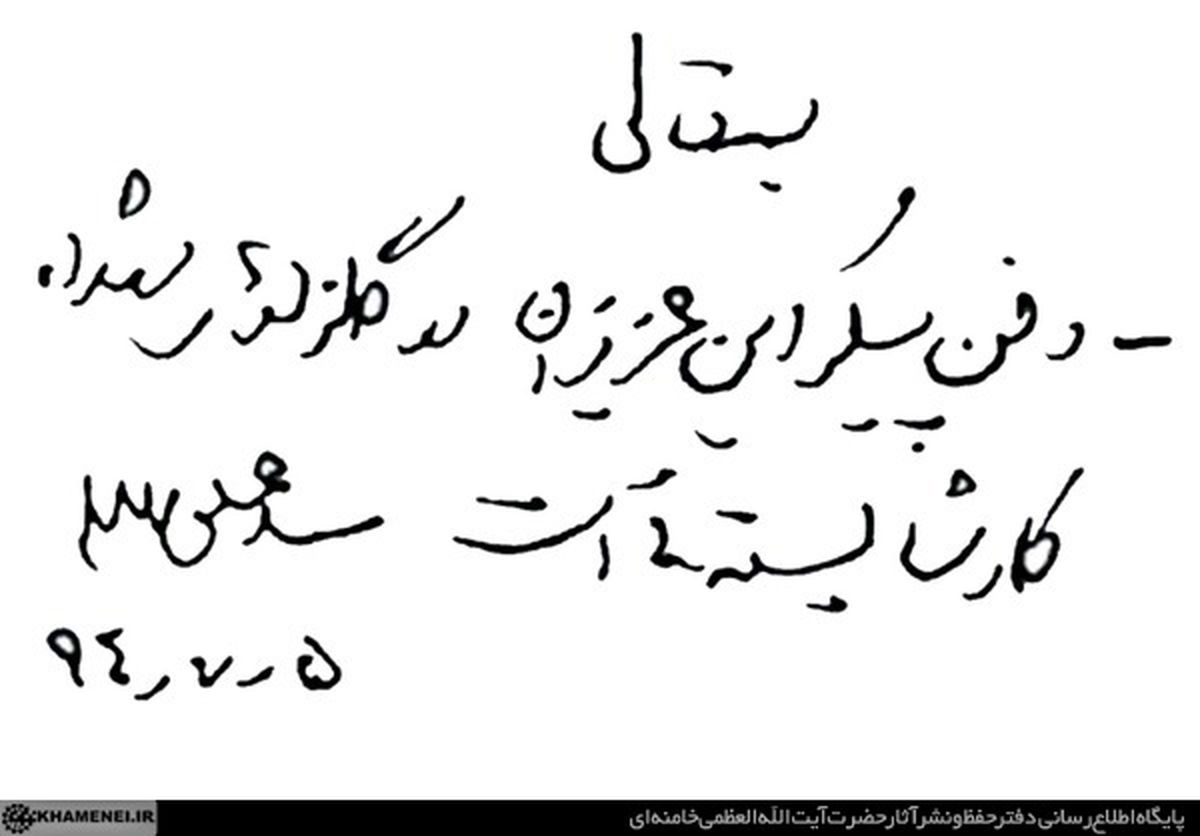 بسمه‌تعالی
- دفن پیکر این عزیزان در گلزارهای شهدا،
کار شایسته‌ای است
۹۴٫۷٫۵
KHAMENEI.IR
پایگاه اطلاع‌رسانی دفتر حفظ و نشر آثار حضرت آیت الله العظمی خامنه‌ای